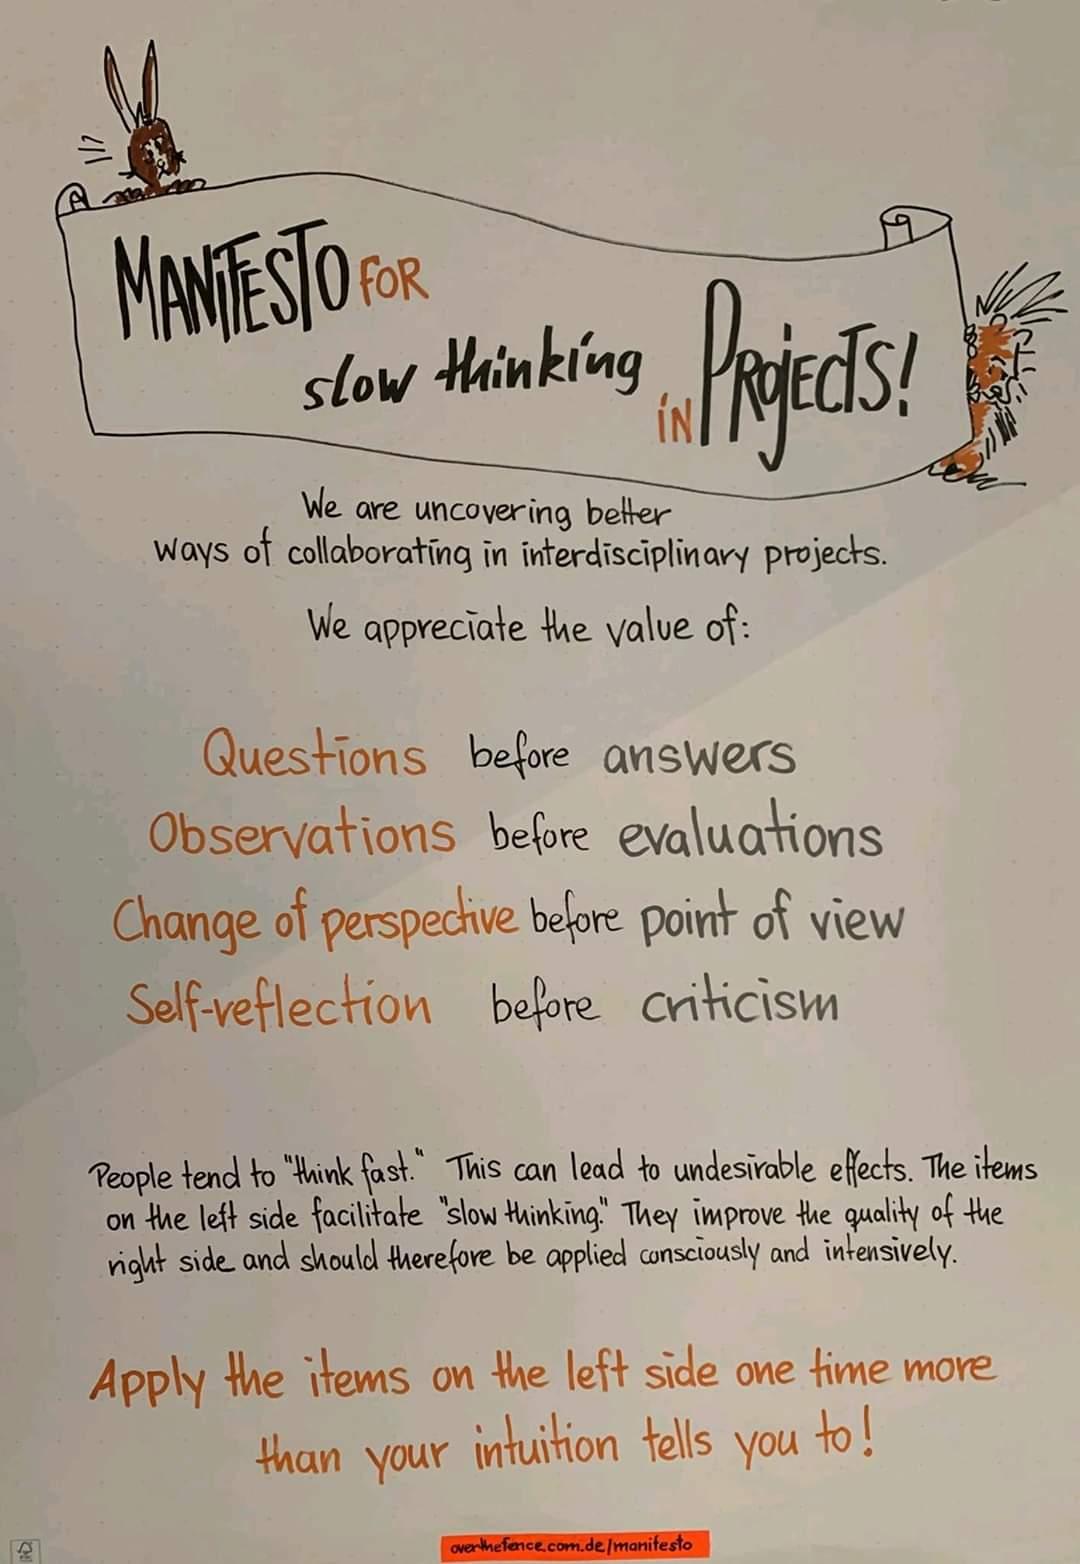 MANIFESTO FOR
slow thinking in PROjECTS!
We are uncovering better
ways of collaborating in interdisciplinary projects.
We appreciate the value of:
Questions before answers
Observations before evaluations
Change of perspective before point of view
Self-reflection before criticism
People tend to "think fast." This can lead to undesirable effects. The items
on the left side facilitate "slow thinking." They improve the quality of the
right side and should therefore be applied consciously and intensively.
Apply the items on the left side one time more
than your intuition tells you to!
overthefence.com.de/manifesto